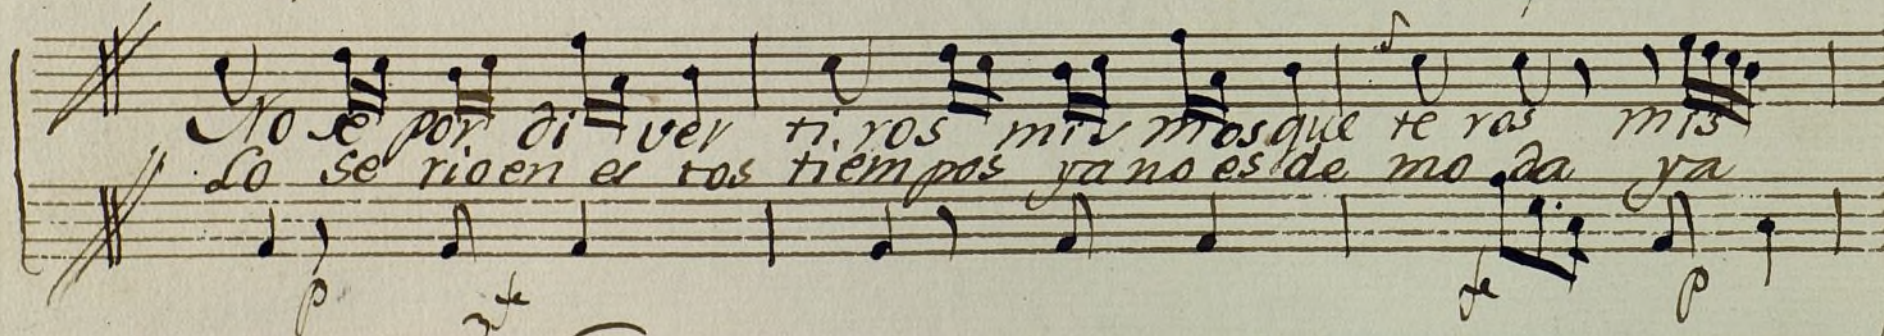 No se por di ver ti ros mis mos que te ros mis
Lo se rio en es tos tiem pos ya no es de mo da ya
p fe fe p